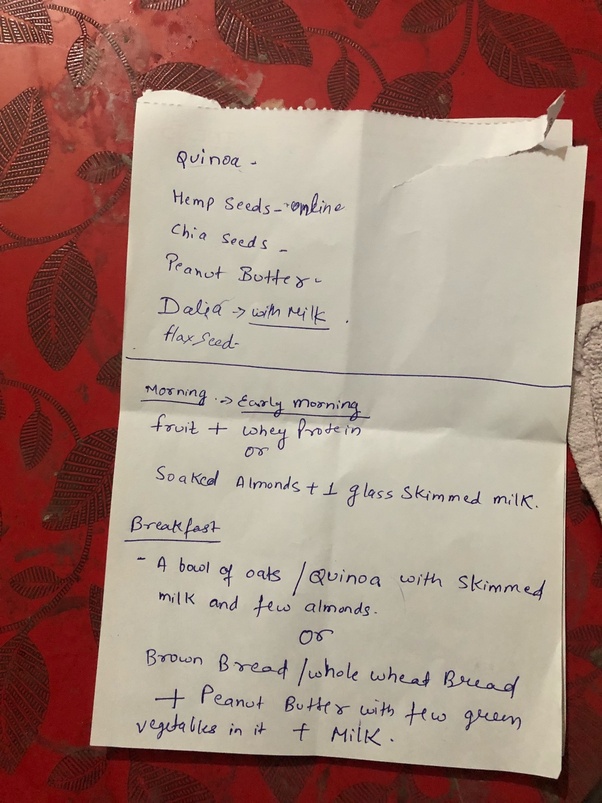 Quinoa -
Hemp Seeds - online
Chia Seeds -
Peanut Butter -
Dalia -> with Milk .
flax Seed -
Morning -> Early morning
fruit + whey Protein
or
Soaked Almonds + 1 glass Skimmed milk.
Breakfast
- A bowl of oats / Quinoa with Skimmed
milk and few almonds.
Or
Brown Bread / whole wheat Bread
+ Peanut Butter with few green
vegetables in it + Milk.